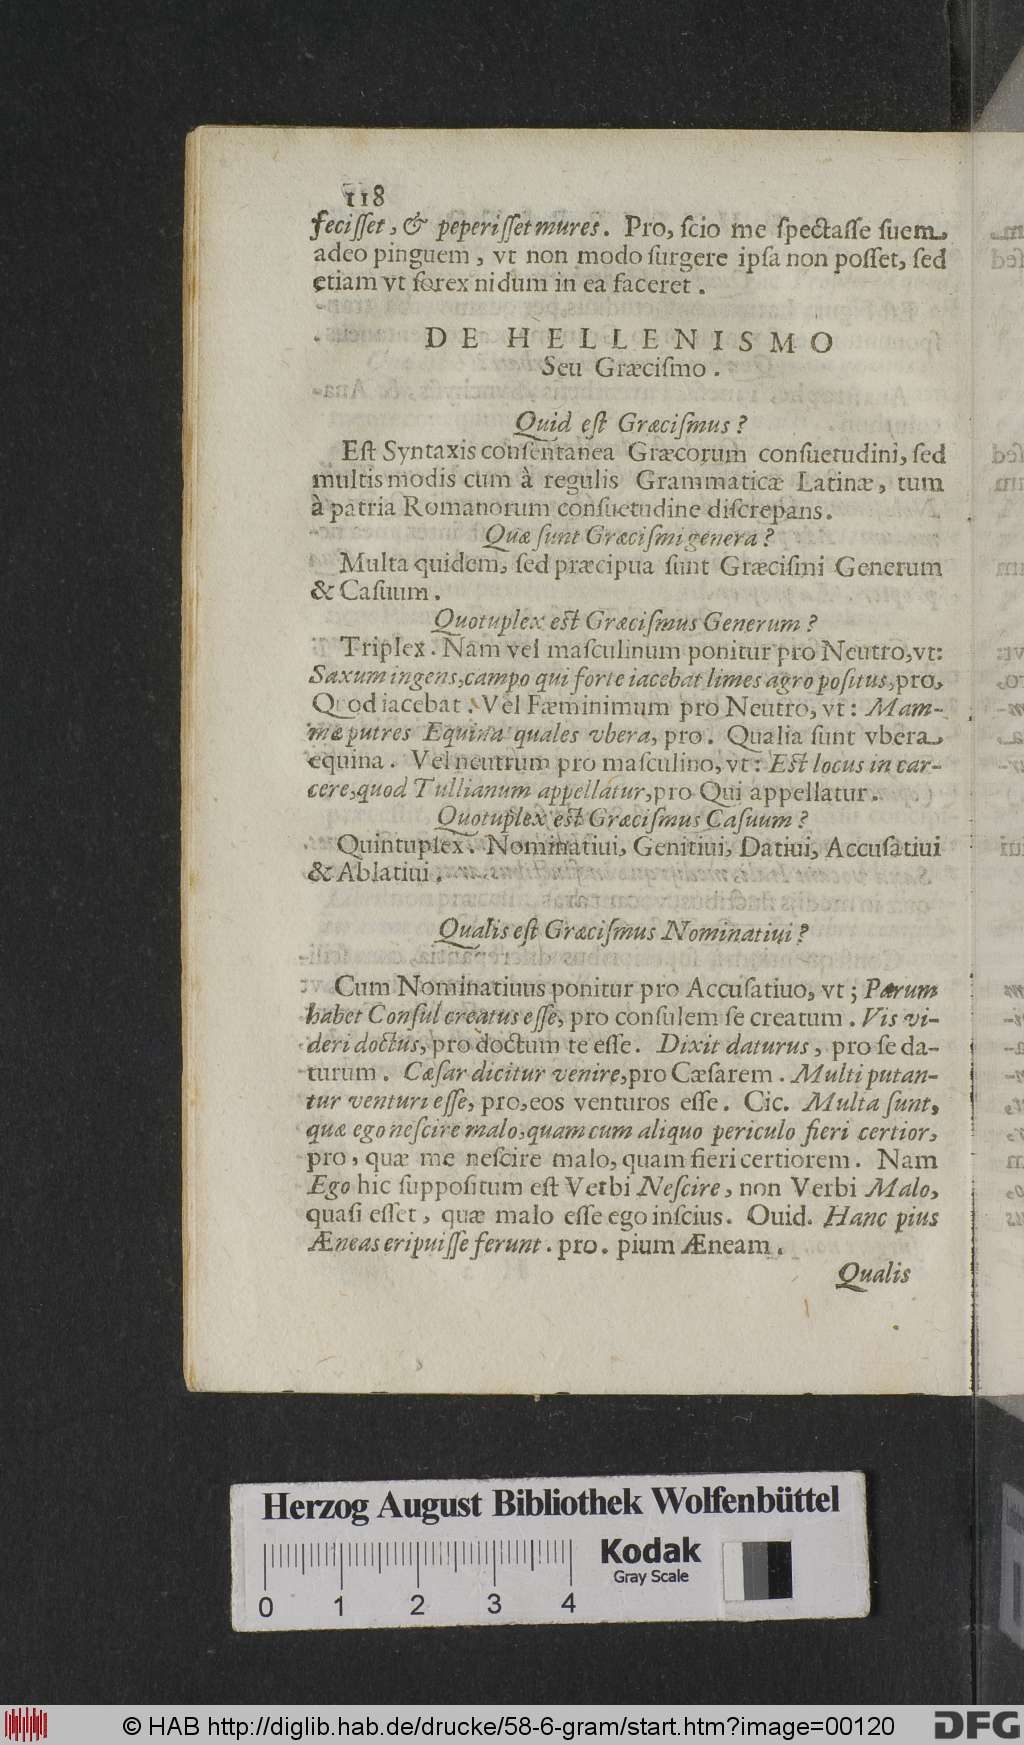 118
feciſſet, & peperiſſet mures. Pro, ſcio me ſpectaſſe ſuem,
adeo pinguem, vt non modo ſurgere ipſa non poſſet, ſed
etiam vt ſorex nidum in ea faceret.
DE HELLENISMO
Seu Græciſmo.
Quid eſt Græciſmus?
Eſt Syntaxis conſentanea Græcorum conſuetudini, ſed
multis modis cum à regulis Grammaticæ Latinæ, tum
à patria Romanorum conſuetudine diſcrepans.
Quæ ſunt Græciſmi genera?
Multa quidem, ſed præcipua ſunt Græciſmi Generum
& Caſuum.
Quotuplex eſt Græciſmus Generum?
Triplex. Nam vel maſculinum ponitur pro Neutro, vt:
Saxum ingens, campo qui forte iacebat limes agro poſitus, pro,
Quod iacebat. Vel Fæminimum pro Neutro, vt: Mam-
mæ putres Equina quales vbera, pro. Qualia ſunt vbera
equina. Vel neutrum pro maſculino, vt: Eſt locus in car-
cere, quod Tullianum appellatur, pro Qui appellatur.
Quotuplex eſt Græciſmus Caſuum?
Quintuplex. Nominatiui, Genitiui, Datiui, Accuſatiui
& Ablatiui.
Qualis eſt Græciſmus Nominatiui?
Cum Nominatiuus ponitur pro Accuſatiuo, vt; Parum
habet Conſul creatus eſſe, pro conſulem ſe creatum. Vis vi-
deri doctus, pro doctum te eſſe. Dixit daturus, pro ſe da-
turum. Cæſar dicitur venire, pro Cæſarem. Multi putan-
tur venturi eſſe, pro, eos venturos eſſe. Cic. Multa ſunt,
quæ ego neſcire malo, quam cum aliquo periculo fieri certior,
pro, quæ me neſcire malo, quam fieri certiorem. Nam
Ego hic ſuppoſitum eſt Verbi Neſcire, non Verbi Malo,
quaſi eſſet, quæ malo eſſe ego inſcius. Ouid. Hanc pius
Æneas eripuiſſe ferunt. pro. pium Æneam.
Qualis
Herzog August Bibliothek Wolfenbüttel
Kodak
Gray Scale
0 1 2 3 4
© HAB http://diglib.hab.de/drucke/58-6-gram/start.htm?image=00120
DFG